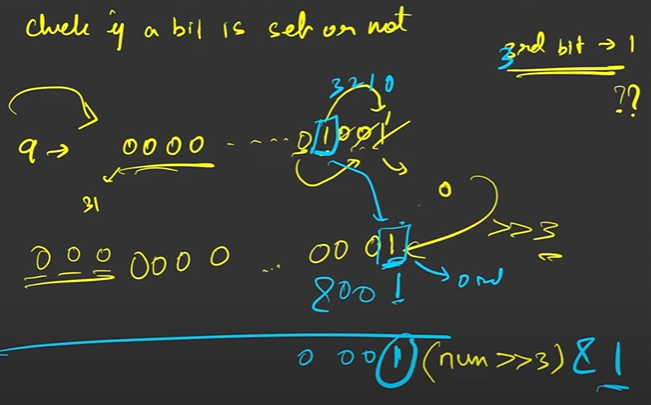 Check if a bit is set or not
3rd bit → 1
??
3 2 1 0
9 → 0000 ---- 01001
31
0
000 0000 ... 0001 >>3
& 00 1 → 0rd
0 001 (num >>3) & 1